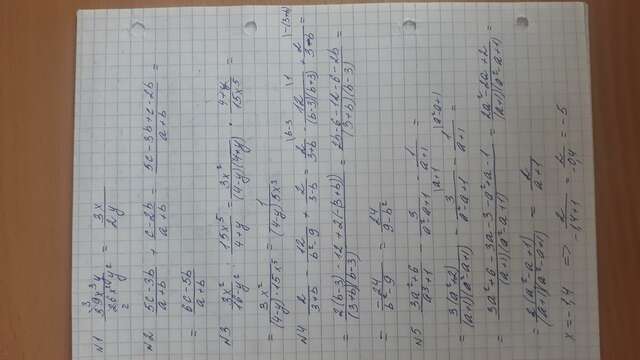 N1 39x³y / 26x²y² = 3x / 2y
N2 5c-3b / a+b + c-2b / a+b = 5c-3b+c-2b / a+b =
= 6c-5b / a+b
N3 3x² / 16-y² : 15x⁵ / 4+y = 3x² / (4-y)(4+y) · 4+y / 15x⁵ =
= 3x² / (4-y)·15x⁵ = 1 / (4-y)5x³
N4 2 / 3+b - 12 / b²-9 + 2 / 3-b = 2 / 3+b - 12 / (b-3)(b+3) + 2 / 3-b =
= 2(b-3)-12+2(-(3+b)) / (3+b)(b-3) = 2b-6-12-6-2b / (3+b)(b-3) =
= -24 / b²-9 = 24 / 9-b²
N5 3a²+6 / a³+1 - 3 / a²-a+1 - 1 / a+1 =
= 3(a²+2) / (a+1)(a²-a+1) - 3 / a²-a+1 - 1 / a+1 =
= 3a²+6-3a-3-a²+a-1 / (a+1)(a²-a+1) = 2a²-2a+2 / (a+1)(a²-a+1) =
= 2(a²-a+1) / (a+1)(a²-a+1) = 2 / a+1
x=-1,4 => 2 / -1,4+1 = 2 / -0,4 = -5